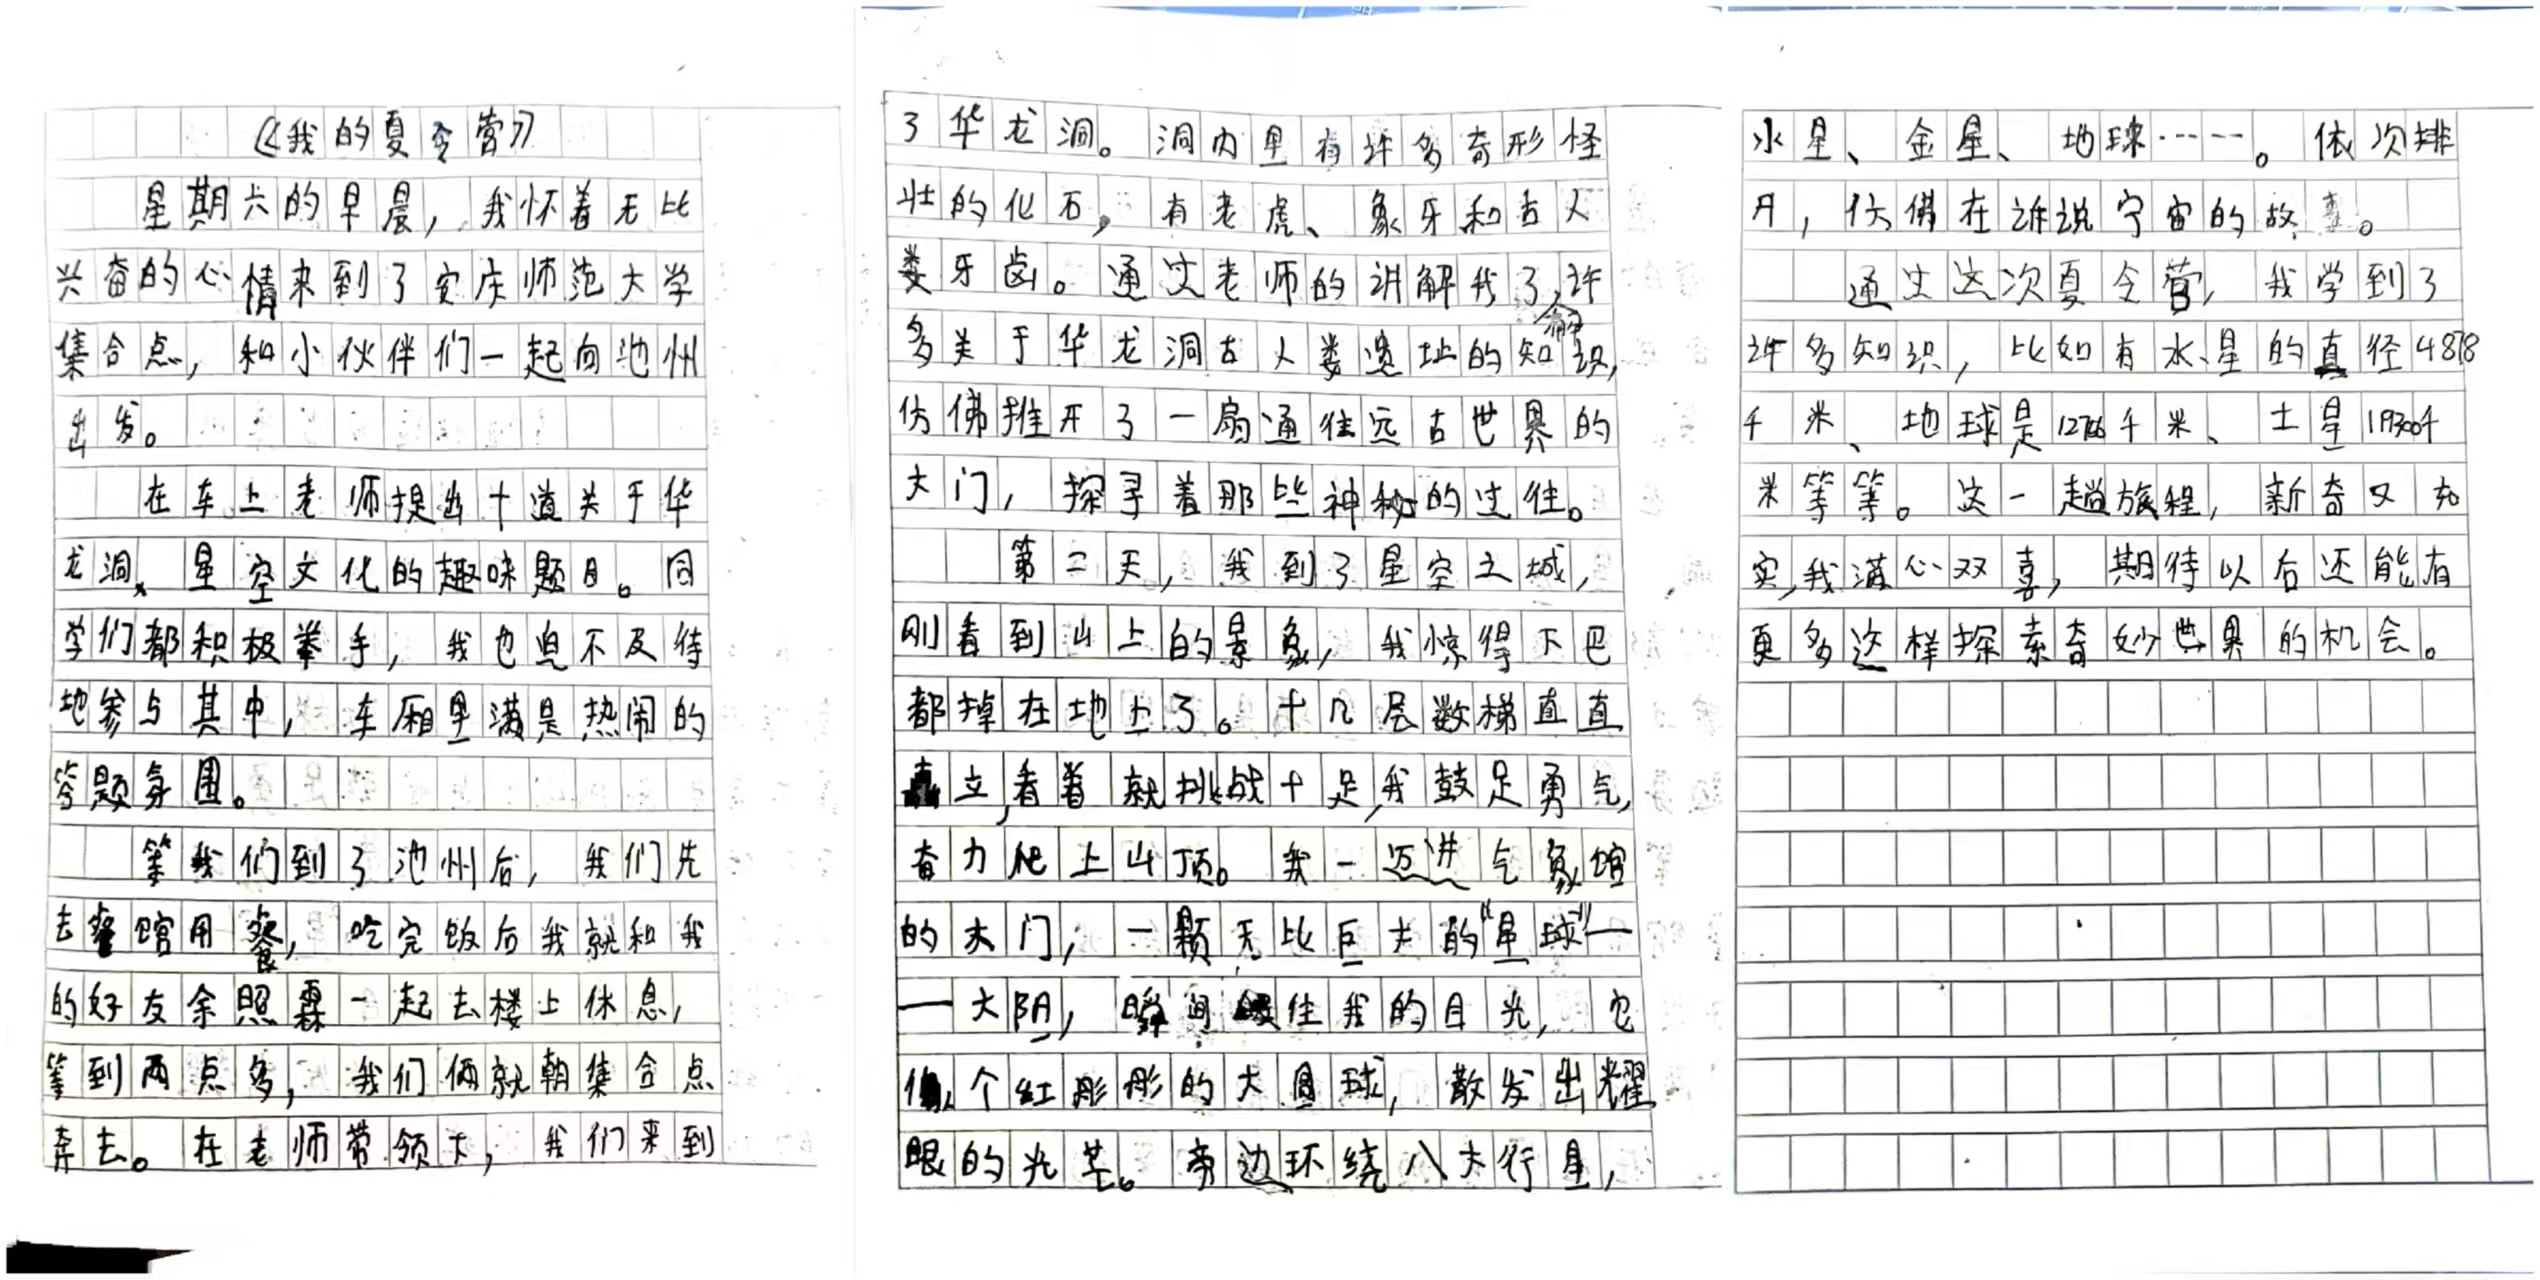 《我的夏令营》
星期六的早晨，我怀着无比
兴奋的心情来到了安庆师范大学
集合点，和小伙伴们一起向池州
出发。
在车上老师提出十道关于华
龙洞、星空文化的趣味题目。同
学们都积极举手，我也迫不及待
地参与其中，车厢里满是热闹的
答题氛围。
等我们到了池州后，我们先
去餐馆用餐，吃完饭后我就和我
的好友余照霖一起去楼上休息，
等到两点多，我们俩就朝集合点
奔去。在老师带领下，我们来到
了华龙洞。洞内里有许多奇形怪
壮的化石，有老虎、象牙和古人
娄牙齿。通过老师的讲解我了解许
多关于华龙洞古人娄遗址的知识，
仿佛推开了一扇通往远古世界的
大门，探寻着那些神秘的过往。
第二天，我到了星空之城，
刚看到山上的景象，我惊得下巴
都掉在地上了。十几层数梯直直
立，看着就挑战十足，我鼓足勇气，
奋力爬上山顶。我一迈进气象馆
的大门，一颗无比巨大的“星球”—
—太阳，瞬间住我的目光，它
像个红彤彤的大圆球，散发出耀
眼的光芒。旁边环绕八大行星，
水星、金星、地球……。依次排
开，仿佛在诉说宇宙的故事。
通过这次夏令营，我学到了
许多知识，比如有水星的直径4878
千米、地球是12766千米、土星119300千
米等等。这一趟旅程，新奇又充
实，我满心双喜，期待以后还能有
更多这样探索奇妙世界的机会。